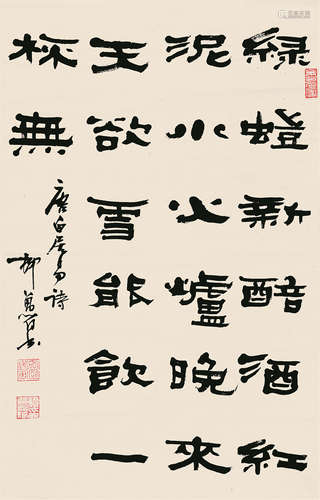 綠螘新醅酒紅
泥小火爐晚來
天欲雪能飲一
杯無
唐白居易詩